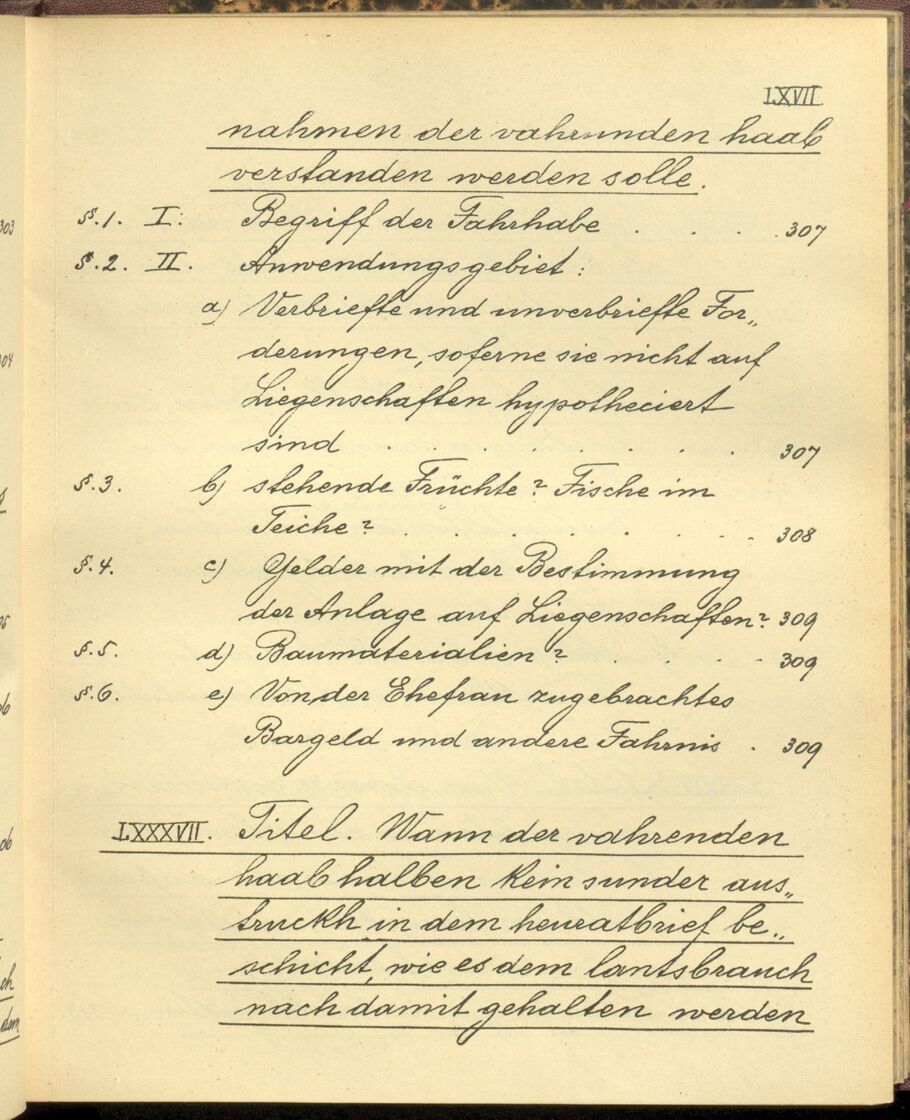 LXVII.
nahmen der vahrunden haab
verstanden werden solle.
§.1. I. Begriff der Fahrhabe . . . . 307
§.2. II. Anwendungsgebiet:
a) Verbriefte und unverbriefte For„
derungen, soferne sie nicht auf
Liegenschaften hypotheciert
sind . . . . . . . . 307
§.3. b) stehende Früchte? Fische im
Teiche? . . . . . . . . 308
§.4. c) Gelder mit der Bestimmung
der Anlage auf Liegenschaften? 309
§.5. d) Baumaterialien? . . . . 309
§.6. e) Von der Ehefrau zugebrachtes
Bargeld und andere Fahrnis . 309
LXXXVII. Titel. Wann der vahrenden
haab halben kein sunder aus„
truckh in dem heuratbrief be„
schicht, wie es dem lantsbrauch
nach damit gehalten werden